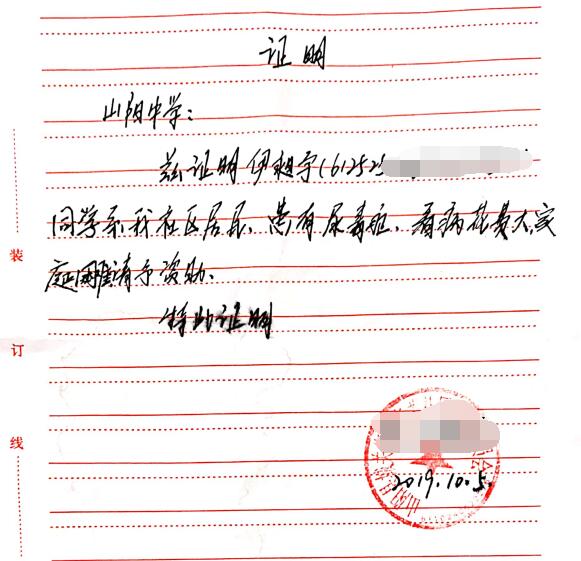 证明
山阳中学：
兹证明伊超宇（61252
同学系我社区居民，患有尿毒症，看病花费大，家
庭困难请予资助。
特此证明
2019.10.5.
装
订
线